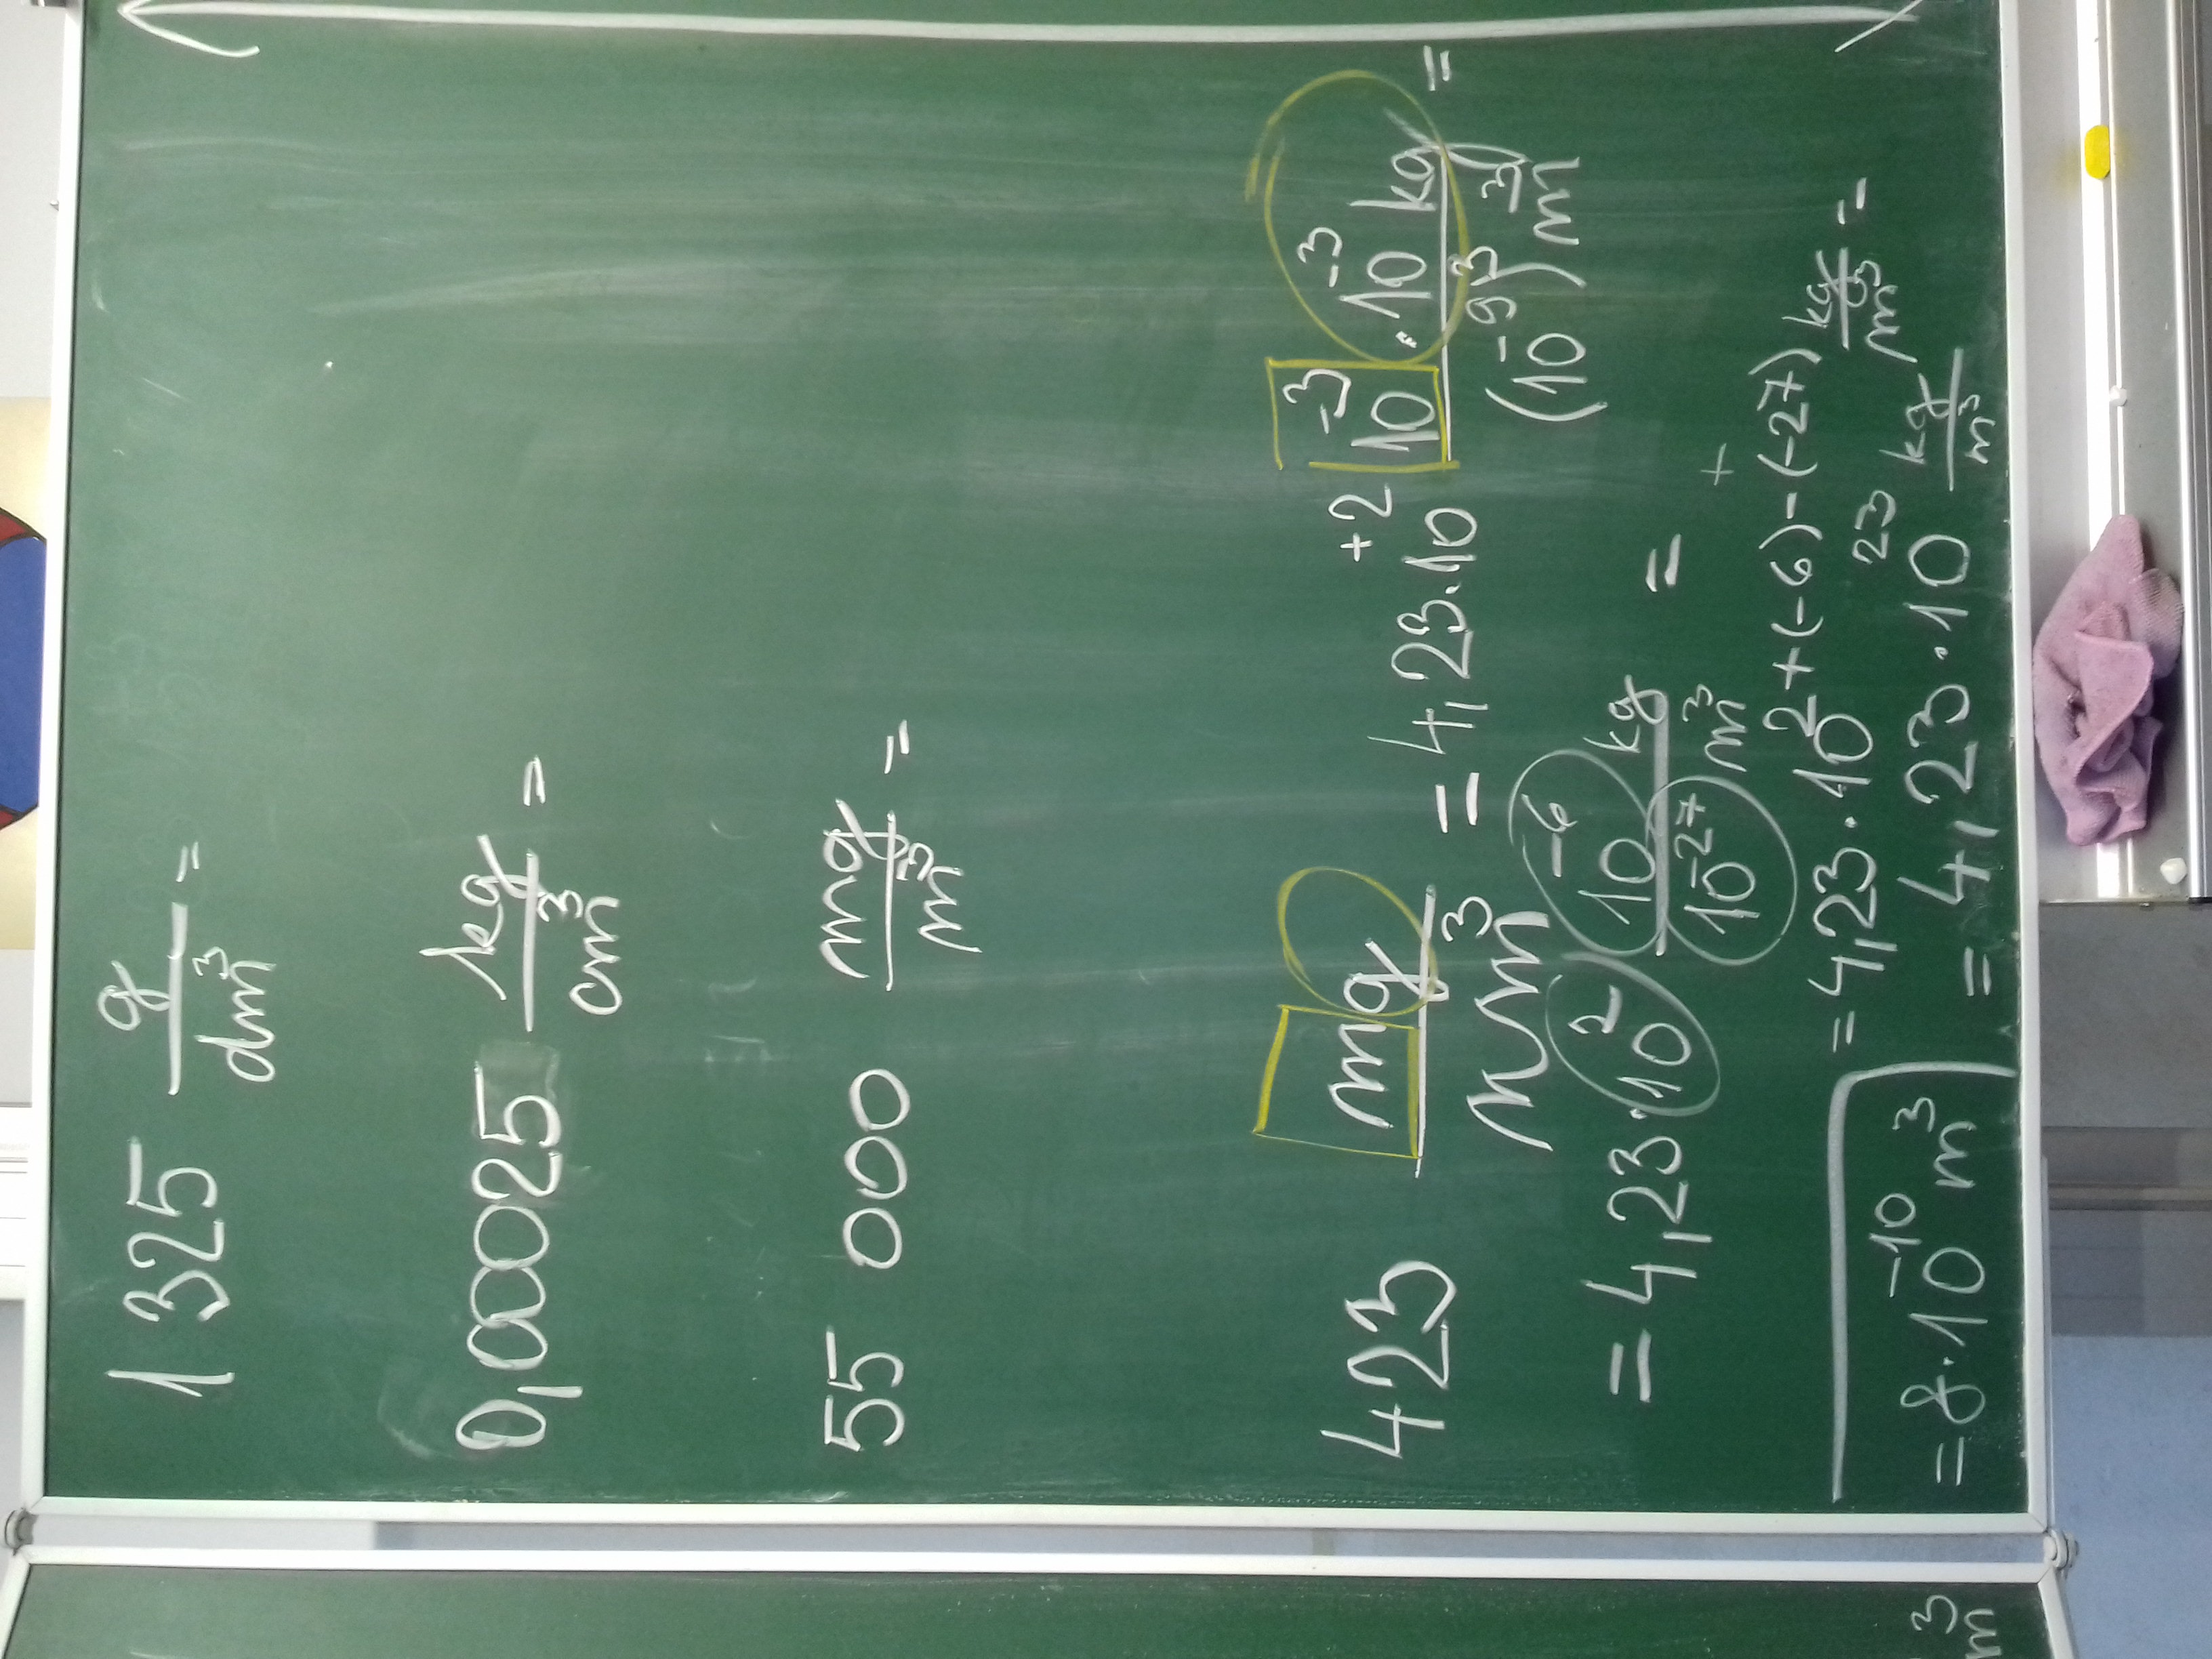 1 325 g/dm³ =
0,00025 kg/cm³ =
55 000 mg/m³ =
423 mg/nm³ = 4,23·10⁺² 10⁻³·10⁻³ kg/(10⁻⁹)³ m³ =
= 4,23·10² 10⁻⁶ kg/10⁻²⁷ m³ =
+
= 4,23·10²⁺⁽⁻⁶⁾⁻⁽⁻²⁷⁾ kg/m³ =
= 4,23·10²³ kg/m³
= 8·10⁻¹⁰ m³
m³